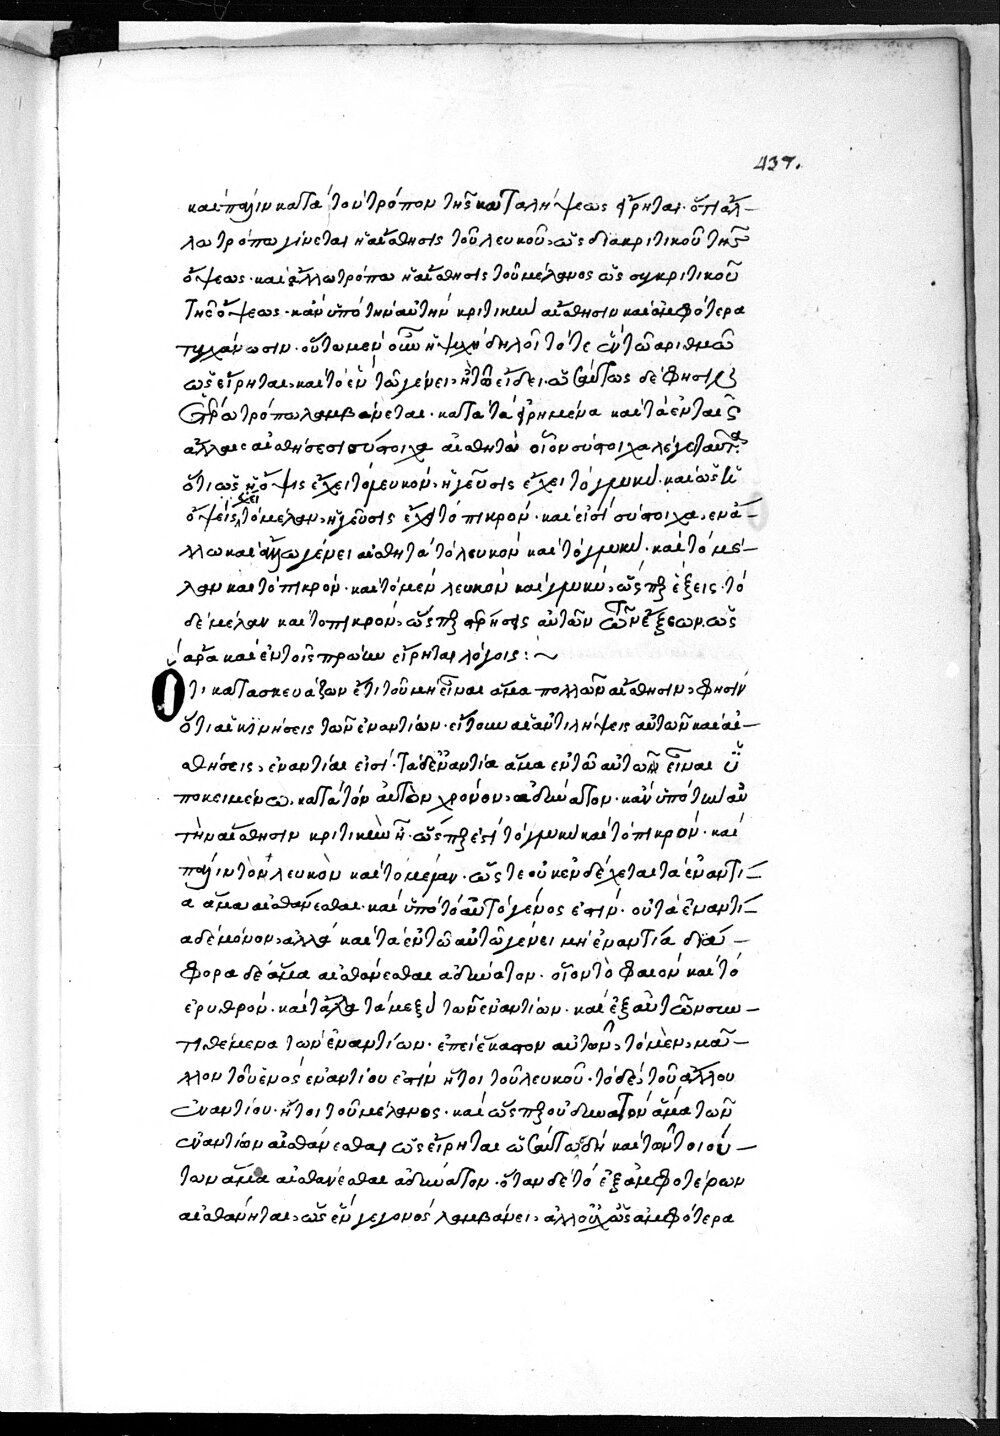 437.
καὶ πάλιν κατὰ τὸν τρόπον τῆς καταλήψεως εἴρηται. ὅτι ἄλ-
λω τρόπω γίνεται ἡ αἴσθησις τοῦ λευκοῦ, ὡς διακριτικοῦ τῆς
ὄψεως. καὶ ἄλλω τρόπω ἡ αἴσθησις τοῦ μέλανος ὡς συγκριτικοῦ
τῆς ὄψεως. κἂν ὑπὸ τὴν αὐτὴν κριτικὴν αἴσθησιν καὶ ἀμφότερα
τυγχάνωσιν. οὕτω μὲν οὖν ἡ ψυχὴ δηλοῖ τό τε ἓν τῶ ἀριθμῶ
ὡς εἴρηται, καὶ τὸ ἓν τῶ γένει, ἢ τῶ εἴδει. ὡσαύτως δέ φησι
τρόπω λαμβάνεται. κατὰ τὰ εἰρημένα καὶ τὰ ἐν ταῖς
ἄλλαις αἰσθήσεσι σύστοιχα αἰσθητά. οἷον σύστοιχα λέγεται ταῦτα.
ὅτι ὡς ἡ ὄψις ἔχει τὸ λευκόν, ἡ γεῦσις ἔχει τὸ γλυκύ. καὶ ὡς ἡ
ὄψις ἔχει τὸ μέλαν, ἡ γεῦσις ἔχει τὸ πικρόν. καὶ εἰσὶ σύστοιχα, ἐν ἄ-
λλω καὶ ἄλλω γένει αἰσθητὰ τὸ λευκὸν καὶ τὸ γλυκύ. καὶ τὸ μέ-
λαν καὶ τὸ πικρόν. καὶ τὸ μὲν λευκὸν καὶ γλυκύ, ὥσπερ ἕξεις. τὸ
δὲ μέλαν καὶ τὸ πικρόν, ὥσπερ στερήσεις αὐτῶν τῶν ἕξεων. ὡς
ἄρα καὶ ἐν τοῖς πρώτοις εἴρηται λόγοις: ~
Ὅτι κατασκευάζων ἔτι τοῦ μὴ εἶναι ἅμα πολλῶν αἴσθησιν, φησὶν
ὅτι αἱ κινήσεις τῶν ἐναντίων. εἴτουν αἱ ἀντιλήψεις αὐτῶν καὶ αἰ-
σθήσεις, ἐναντίαι εἰσί. τὰ δὲ ἐναντία ἅμα ἐν τῶ αὐτῶ εἶναι ὑ-
ποκειμένω, κατὰ τὸν αὐτὸν χρόνον, ἀδύνατον. κἂν ὑπὸ τὴν αὐ
τὴν αἴσθησιν κριτικὴν ᾖ. ὥσπερ ἐστὶ τὸ γλυκὺ καὶ τὸ πικρόν. καὶ
πάλιν τὸ λευκὸν καὶ τὸ μέλαν. ὥστε οὐκ ἐνδέχεται τὰ ἐναντί-
α ἅμα αἰσθάνεσθαι. καὶ ὑπὸ τὸ αὐτὸ γένος ἐστίν. οὐ τὰ ἐναντί-
α δὲ μόνον, ἀλλὰ καὶ τὰ ἐν τῶ αὐτῶ γένει μὴ ἐναντία διά-
φορα δὲ ἅμα αἰσθάνεσθαι ἀδύνατον. οἷον τὸ φαιὸν καὶ τὸ
ἐρυθρόν. καὶ τἄλλα τὰ μεταξὺ τῶν ἐναντίων. καὶ ἐξ αὐτῶν συν-
τιθέμενα τῶν ἐναντίων. ἐπεὶ ἕκαστον αὐτῶν, τὸ μὲν, μᾶ-
λλον τοῦ ἑνὸς ἐναντίου ἐστὶν ἤτοι τοῦ λευκοῦ. τὸ δὲ, τοῦ ἄλλου
ἐναντίου. ἤτοι τοῦ μέλανος. καὶ ὥσπερ οὐ δυνατὸν ἅμα τῶν
ἐναντίων αἰσθάνεσθαι ὡς εἴρηται ὡσαύτως δὴ καὶ τῶν τοιού-
των ἅμα αἰσθάνεσθαι ἀδύνατον. ὅταν δὲ τὸ ἐξ ἀμφοτέρων
αἰσθάνηται, ὡς ἓν γεγονὸς λαμβάνει, ἀλλ' οὐχ ὡς ἀμφότερα